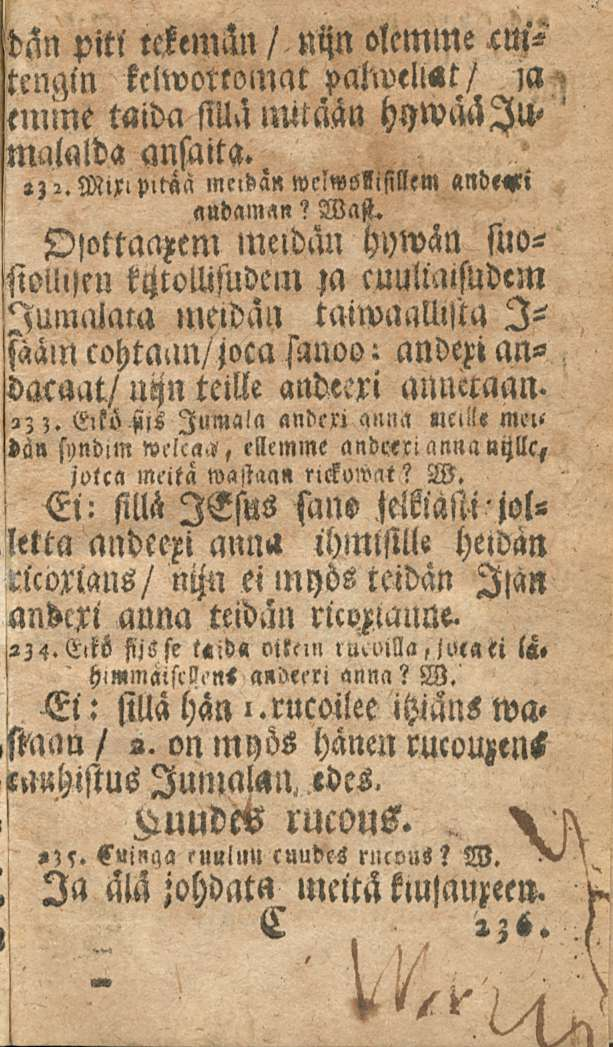 dän piti tekemän / nijn olemme cui-
tengin kelwottomat palweliat / ja
emme taida sillä mitään hywää Ju-
malalda ansaita.
232. Mixi pitää meidän welwollisillem andeexi
andaman ? Wast.
Osottaaxem meidän hywän suo-
siollisen kijtollisudem ja cuuliaisudem
Jumalata meidän taiwaallista I-
sääm cohtaan / joca sanoo : andexi an-
dacaat / nijn teille andeexi annetaan.
233. Eikö sijs Jumala andexi anna meille mei-
dän syndim welcaa, ellemme andeexi anna nijlle,
jotca meitä wastaan rickowat ? W.
Ei : sillä JEsus sano selkiästi jol-
letta andeexi anna ihmisille heidän
ricoxians / nijn ei myös teidän Isän
andexi anna teidän ricoxianne.
234. Eikö sijs se taida oikein rucoilla, joca ei lä-
himmäisellens andeexi anna ? W.
Ei : sillä hän 1. rucoilee itziäns wa-
staan / 2. on myös hänen rucouxens
cauhistus Jumalan edes.
Cuudes rucous.
235. Cuinga cuuluu cuudes rucous ? W.
Ja älä johdata meitä kiusauxeen.
C 236.